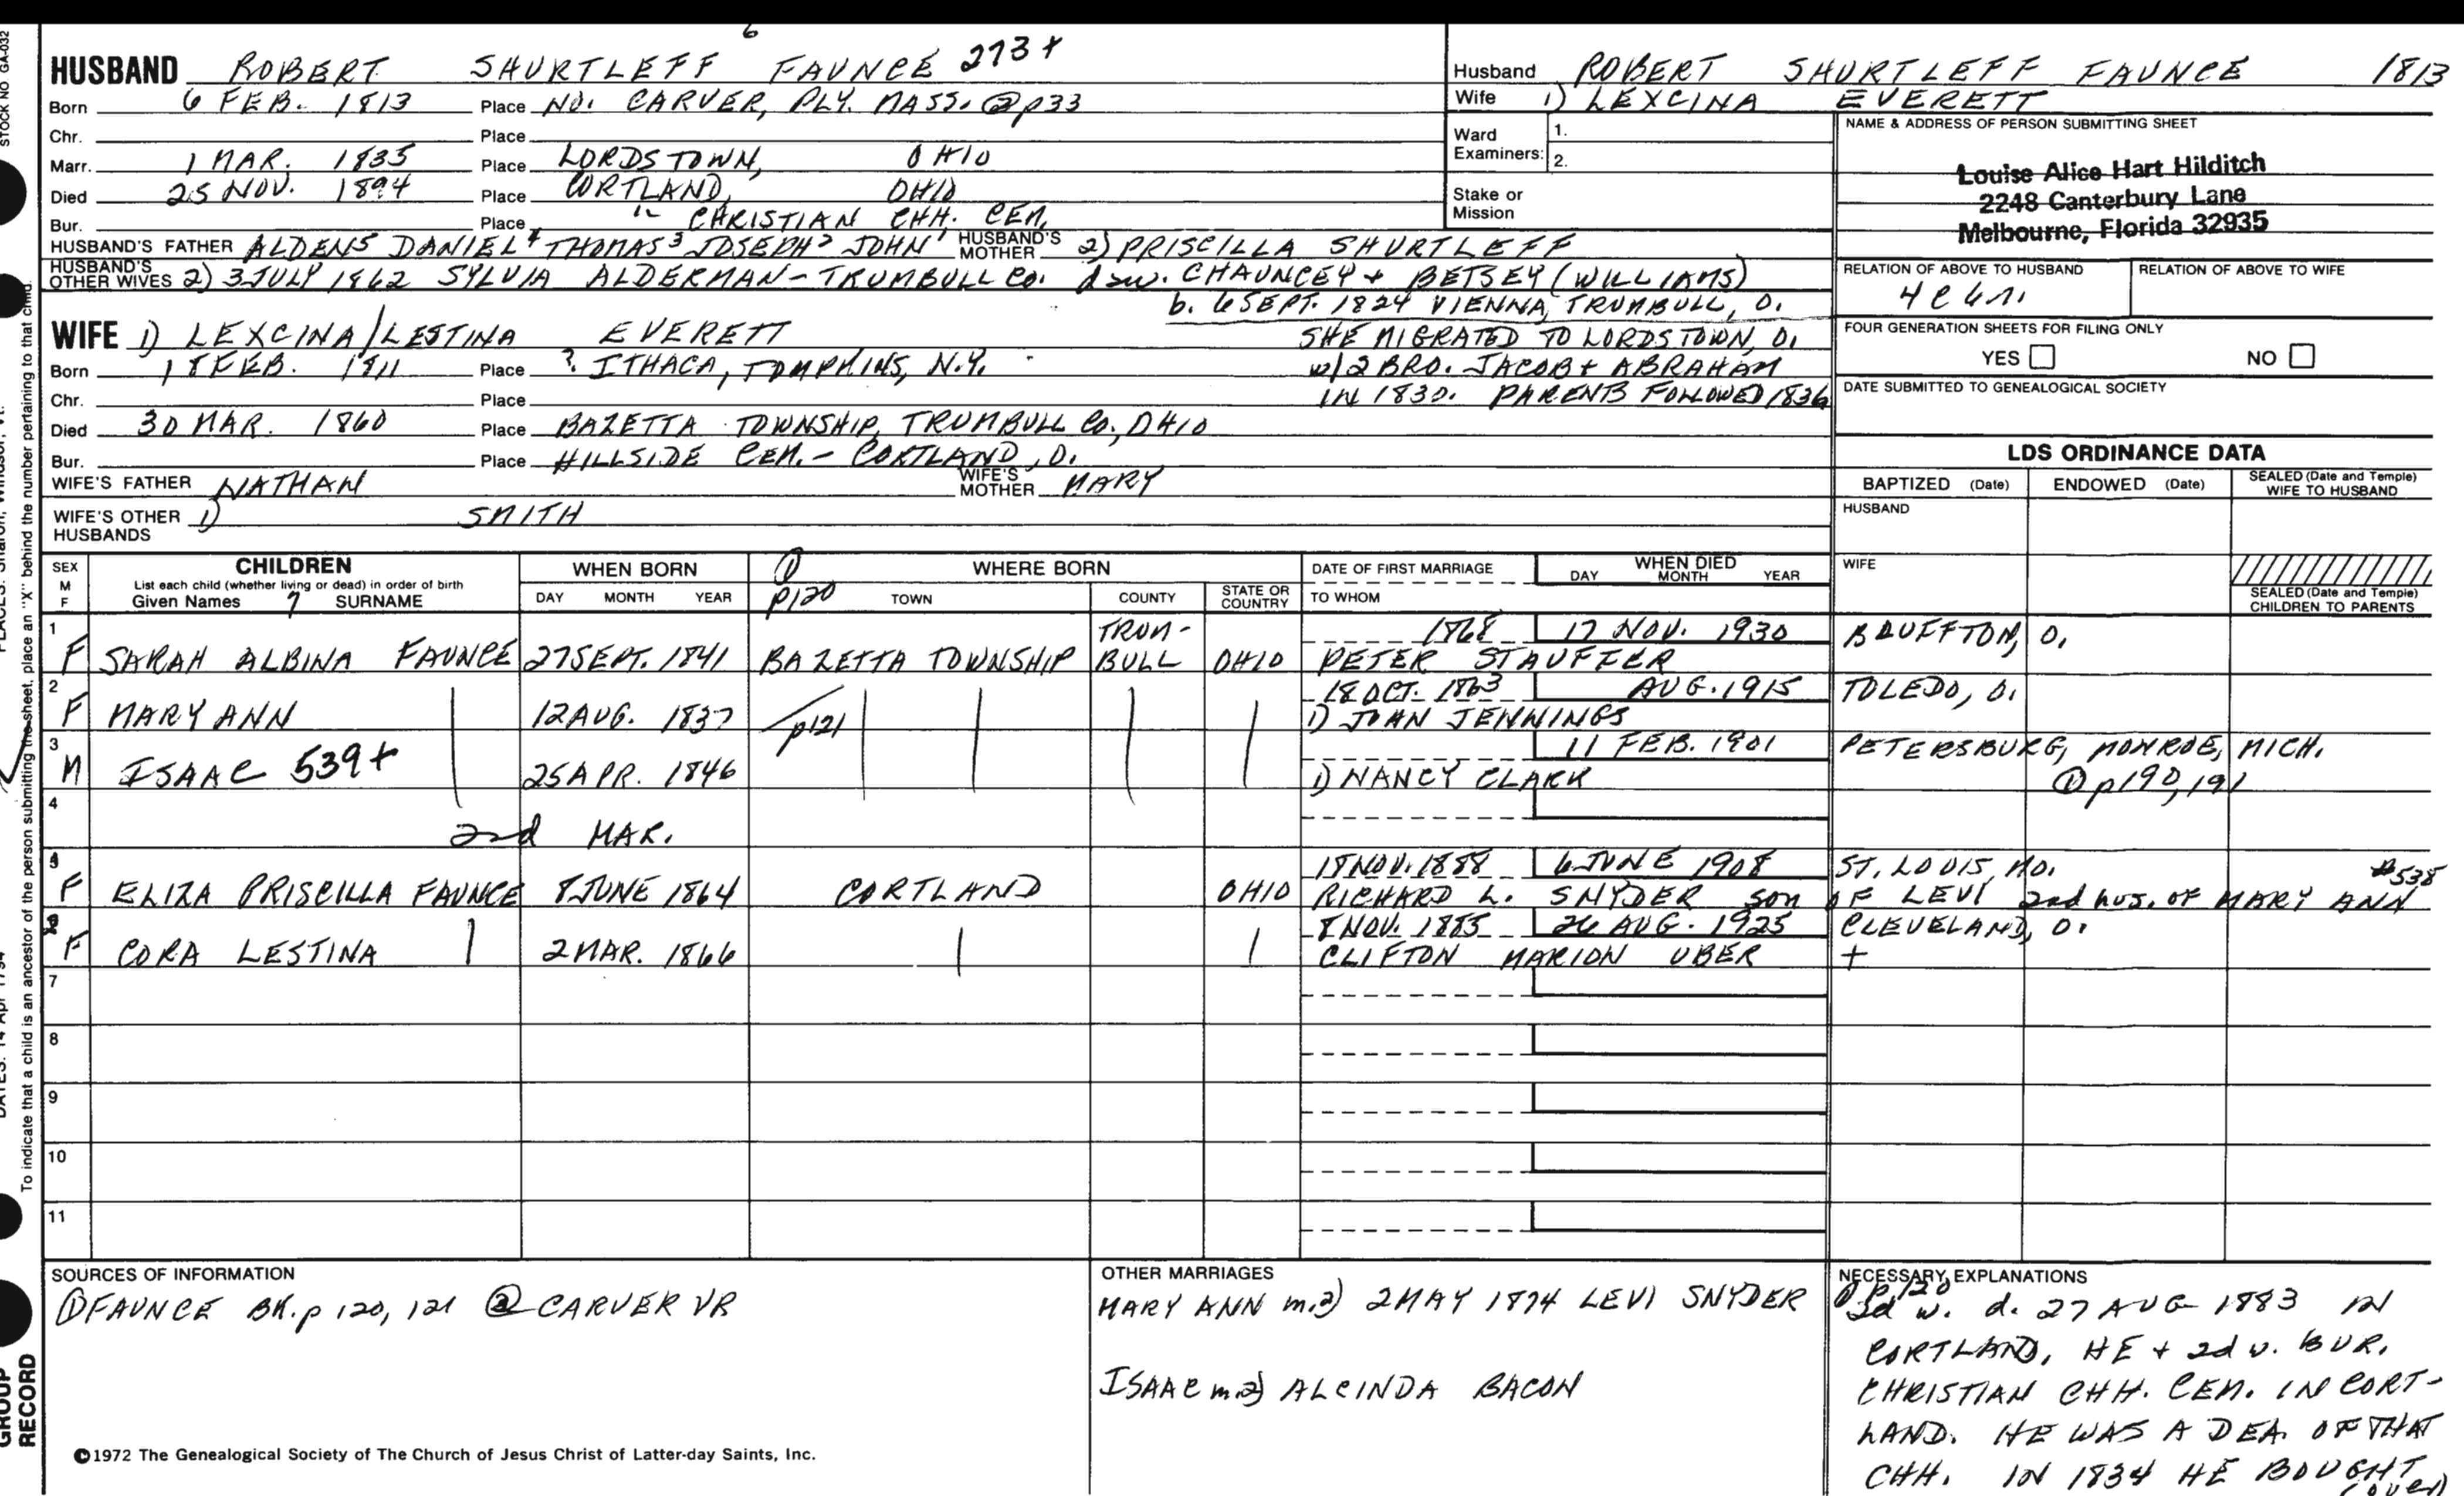 STOCK NO GA-032
HUSBAND ROBERT SHURTLEFF⁶ FAUNCE 273+
Born 6 FEB. 1813 Place NO. CARVER, PLY. MASS. ② p33
Chr. Place
Marr. 1 MAR. 1835 Place LORDSTOWN, OHIO
Died 25 NOV. 1894 Place CORTLAND, OHIO
Bur. Place " CHRISTIAN CHH. CEM.
HUSBAND'S FATHER ALDEN⁵ DANIEL⁴ THOMAS³ JOSEPH² JOHN¹ HUSBAND'S MOTHER 2) PRISCILLA SHURTLEFF
HUSBAND'S OTHER WIVES 2) 3 JULY 1862 SYLVIA ALDERMAN - TRUMBULL CO. dau. CHAUNCEY + BETSEY (WILLIAMS)
b. 6 SEPT. 1824 VIENNA, TRUMBULL, O.
WIFE 1) LEXCINA/LESTINA EVERETT
SHE MIGRATED TO LORDSTOWN, O.
Born 18 FEB. 1811 Place ? ITHACA, TOMPKINS, N.Y.
w/2 BRO. JACOB + ABRAHAM
Chr. Place
IN 1830. PARENTS FOLLOWED 1836
Died 30 MAR. 1860 Place BAZETTA TOWNSHIP, TRUMBULL CO., OHIO
Bur. Place HILLSIDE CEM. - CORTLAND, O.
WIFE'S FATHER NATHAN WIFE'S MOTHER MARY
WIFE'S OTHER HUSBANDS 1) SMITH
Husband ROBERT SHURTLEFF FAUNCE 1813
Wife 1) LEXCINA EVERETT
Ward Examiners: 1.
2.
Stake or Mission
NAME & ADDRESS OF PERSON SUBMITTING SHEET
Louise Alice Hart Hilditch
2248 Canterbury Lane
Melbourne, Florida 32935
RELATION OF ABOVE TO HUSBAND RELATION OF ABOVE TO WIFE
FOUR GENERATION SHEETS FOR FILING ONLY
YES NO
DATE SUBMITTED TO GENEALOGICAL SOCIETY
LDS ORDINANCE DATA
BAPTIZED (Date) ENDOWED (Date) SEALED (Date and Temple) WIFE TO HUSBAND
HUSBAND
WIFE
SEALED (Date and Temple) CHILDREN TO PARENTS
SEX M F
CHILDREN
List each child (whether living or dead) in order of birth
Given Names 7 SURNAME
WHEN BORN
DAY MONTH YEAR
① p120
WHERE BORN
TOWN COUNTY STATE OR COUNTRY
DATE OF FIRST MARRIAGE
TO WHOM
WHEN DIED
DAY MONTH YEAR
1 1868 17 NOV. 1930 BLUFFTON, O.
F SARAH ALBINA FAUNCE 27 SEPT. 1841 BAZETTA TOWNSHIP TRUM-BULL OHIO PETER STAUFFER
2 18 OCT. 1863 AUG. 1915 TOLEDO, O.
F MARY ANN 12 AUG. 1837 p121 1) JOHN JENNINGS
3 11 FEB. 1901 PETERSBURG, MONROE, MICH.
M ISAAC 539+ 25 APR. 1846 1) NANCY CLARK ① p190,191
4
2nd MAR.
5 4 18 NOV. 1888 6 JUNE 1908 ST. LOUIS, MO. #538
F ELIZA PRISCILLA FAUNCE 8 JUNE 1864 CORTLAND OHIO RICHARD L. SNYDER son OF LEVI 2nd hus. OF MARY ANN
8 NOV. 1885 26 AUG. 1925 CLEVELAND, O.
F CORA LESTINA 2 MAR. 1866 CLIFTON MARION UBER +
7
8
9
10
11
SOURCES OF INFORMATION
① FAUNCE BK. p 120, 121 ② CARVER VR
OTHER MARRIAGES
MARY ANN m.2) 2 MAY 1874 LEVI SNYDER
ISAAC m.2) ALCINDA BACON
NECESSARY EXPLANATIONS
① p.120
2d w. d. 27 AUG 1883 IN
CORTLAND. HE + 2d w. BUR.
CHRISTIAN CHH. CEM. IN CORT-
LAND. HE WAS A DEA. OF THAT
CHH. IN 1834 HE BOUGHT
(over)
©1972 The Genealogical Society of The Church of Jesus Christ of Latter-day Saints, Inc.
To indicate that a child is an ancestor of the person submitting the sheet, place an "X" behind the number pertaining to that child.
PLACES: Sharon, Windsor, Vt.
DATES: 14 Apr 1794
GROUP
RECORD